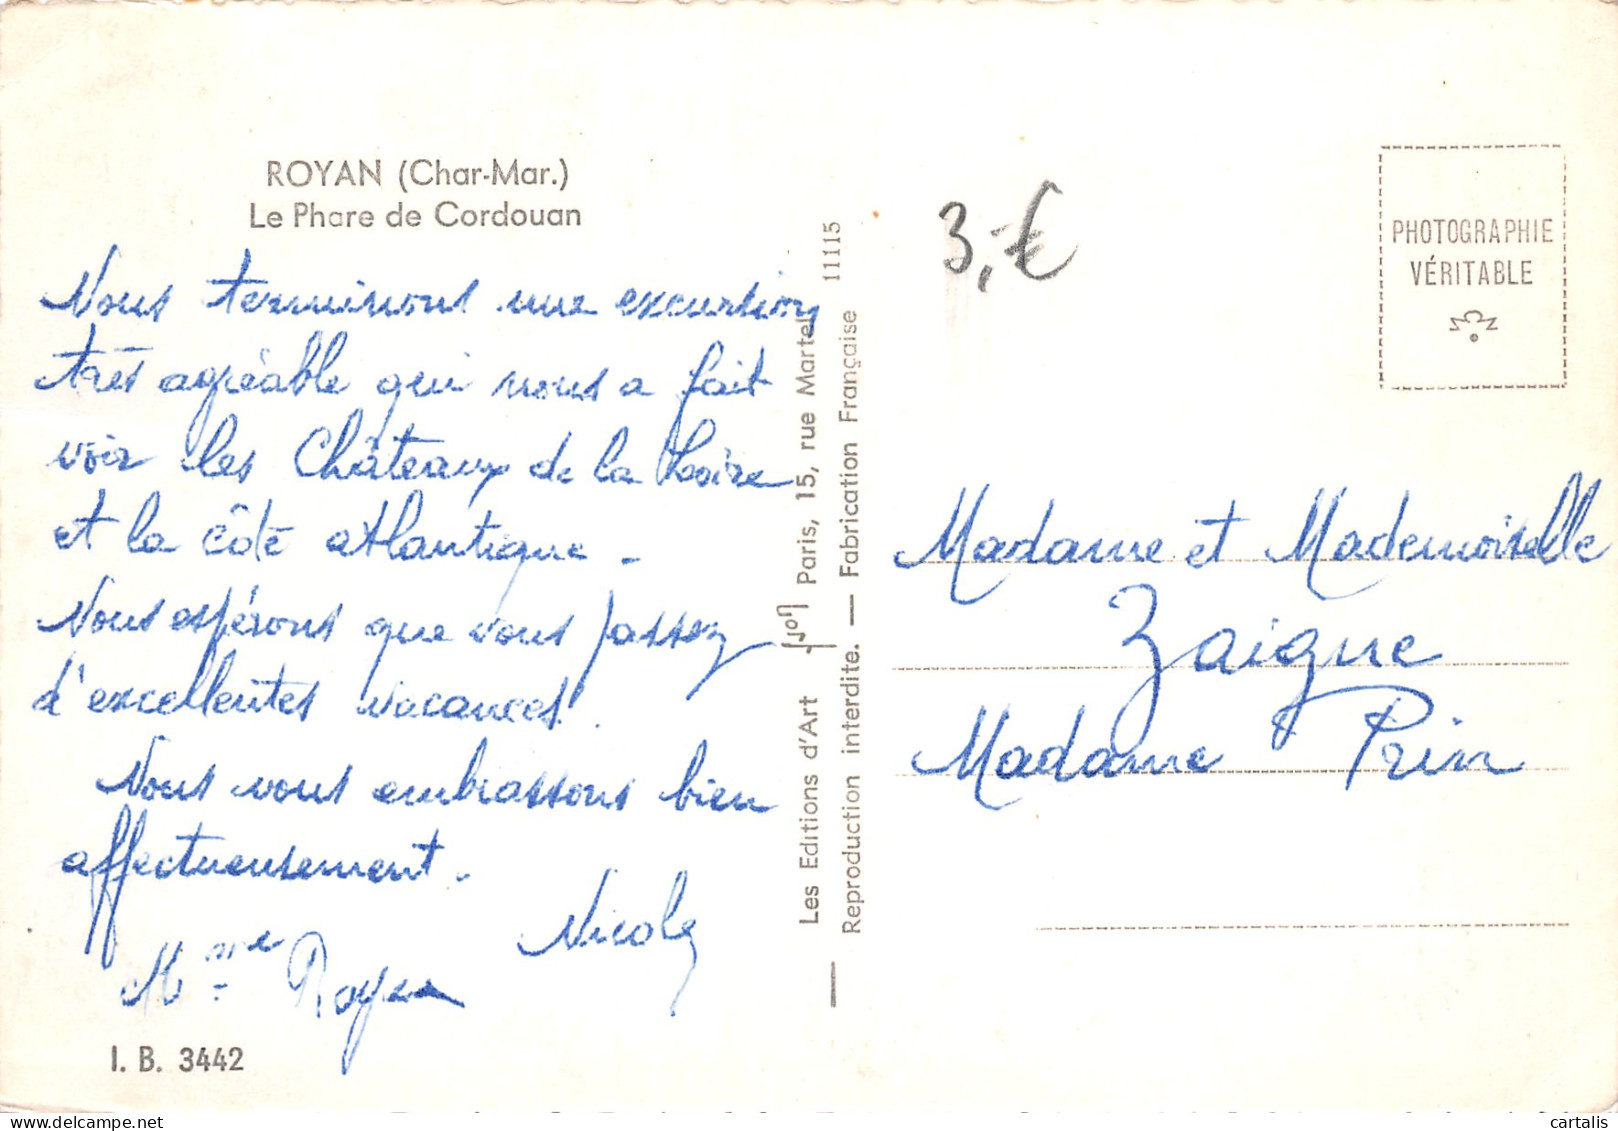 ROYAN (Char-Mar.)
Le Phare de Cordouan
Nous terminons une excursion
très agréable qui nous a fait
voir les Châteaux de la Loire
et la côte atlantique.
Nous espérons que vous passez
d'excellentes vacances.
Nous vous embrassons bien
affectueusement.
Nicole
Mme
I. B. 3442
Les Editions d'Art Paris, 15, rue Martel
Reproduction interdite. — Fabrication Française 11115
3,-€
PHOTOGRAPHIE
VÉRITABLE
Madame et Mademoiselle
Zaigue
Madame Prin
cartalis